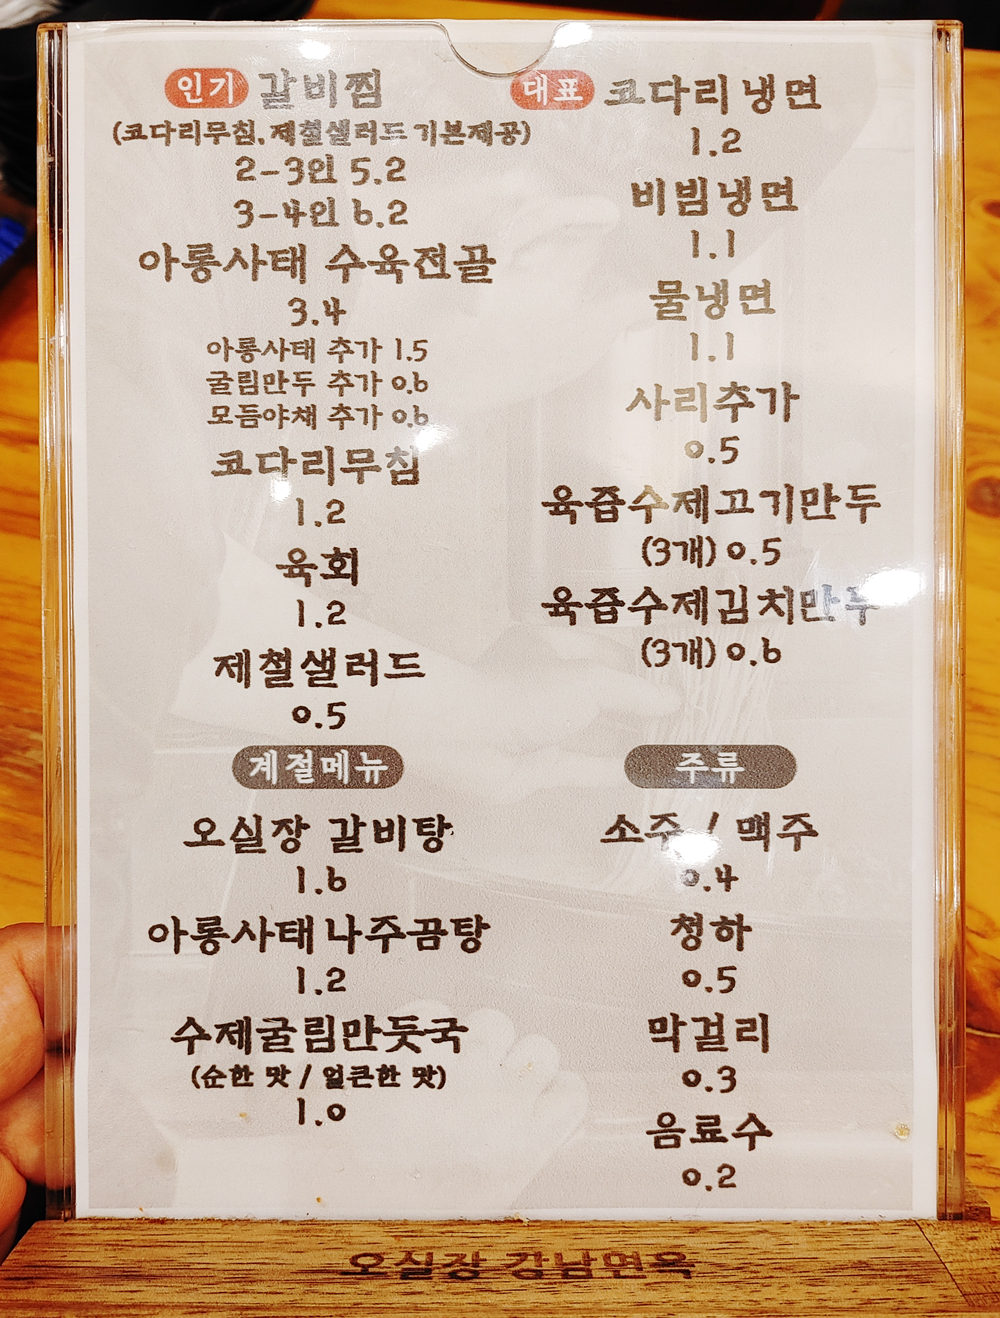 인기 갈비찜
(코다리무침, 제철샐러드 기본제공)
2-3인 5.2
3-4인 6.2
아롱사태 수육전골
3.4
아롱사태 추가 1.5
굴림만두 추가 0.6
모듬야채 추가 0.6
코다리무침
1.2
육회
1.2
제철샐러드
0.5
대표 코다리냉면
1.2
비빔냉면
1.1
물냉면
1.1
사리추가
0.5
육즙수제고기만두
(3개) 0.5
육즙수제김치만두
(3개) 0.6
계절메뉴
오실장 갈비탕
1.6
아롱사태나주곰탕
1.2
수제굴림만둣국
(순한 맛 / 얼큰한 맛)
1.0
주류
소주 / 맥주
0.4
청하
0.5
막걸리
0.3
음료수
0.2
오실장 강남면옥